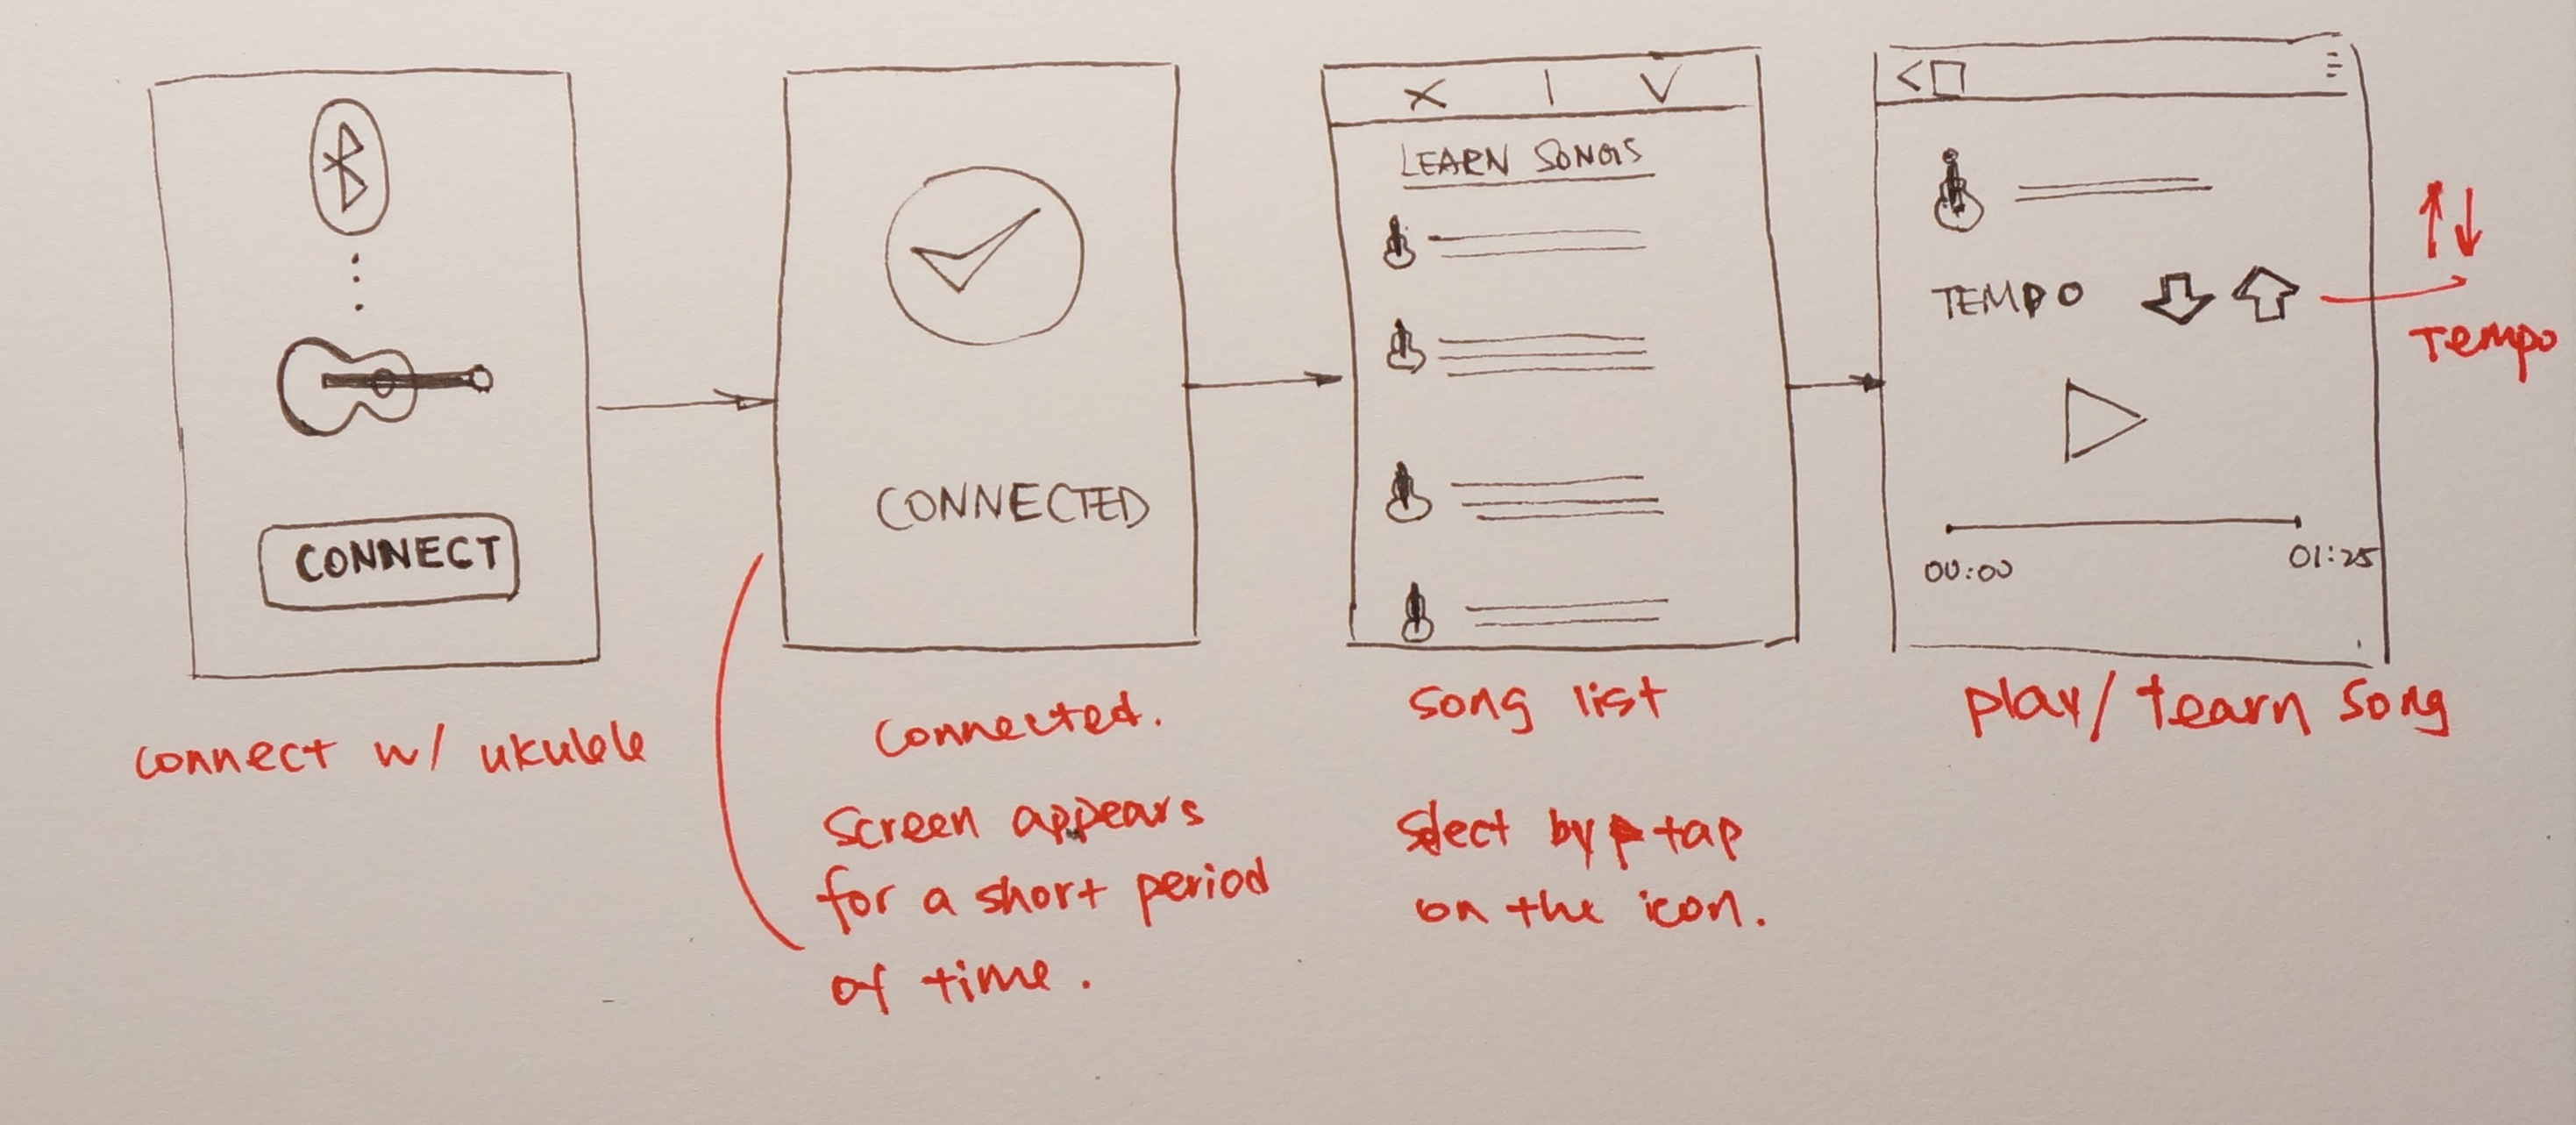 CONNECT
connect w/ ukulele
CONNECTED
connected.
screen appears
for a short period
of time.
LEARN SONGS
song list
select by tap
on the icon.
TEMPO
00:00
01:25
play/ learn song
Tempo